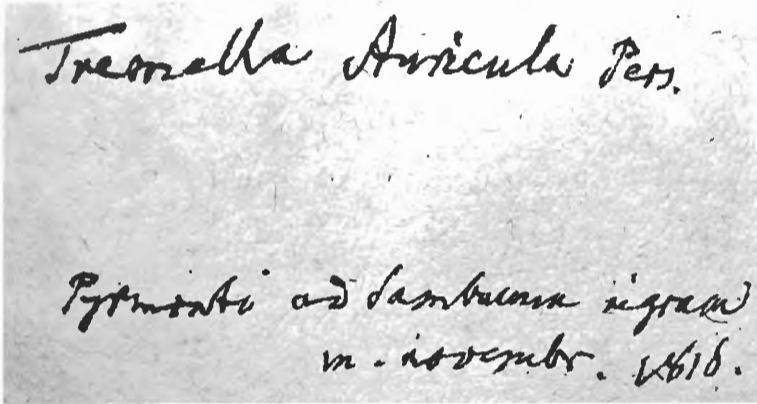 Tremella Auricula Pers.
Pyrmonti ad Sambucum nigram
m. novembr.